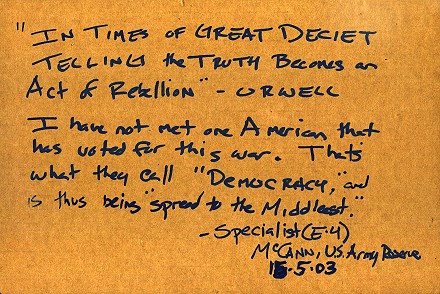 "IN TIMES OF GREAT DECIET
TELLING the TRUTH Becomes an
Act of Rebellion" - ORWELL
I have not met one American that
has voted for this war. Thats
what they call "DEMOCRACY," and
is thus being "spread to the Middleeast."
- Specialist (E-4)
McCANN, U.S. Army Reserve
15.5.03